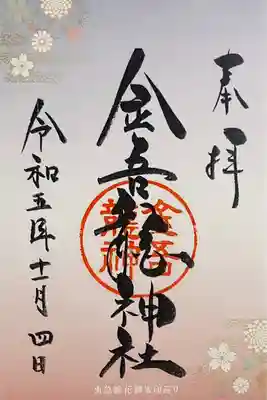 奉拝
金吾龍神社
金吾龍神
令和五年十一月四日